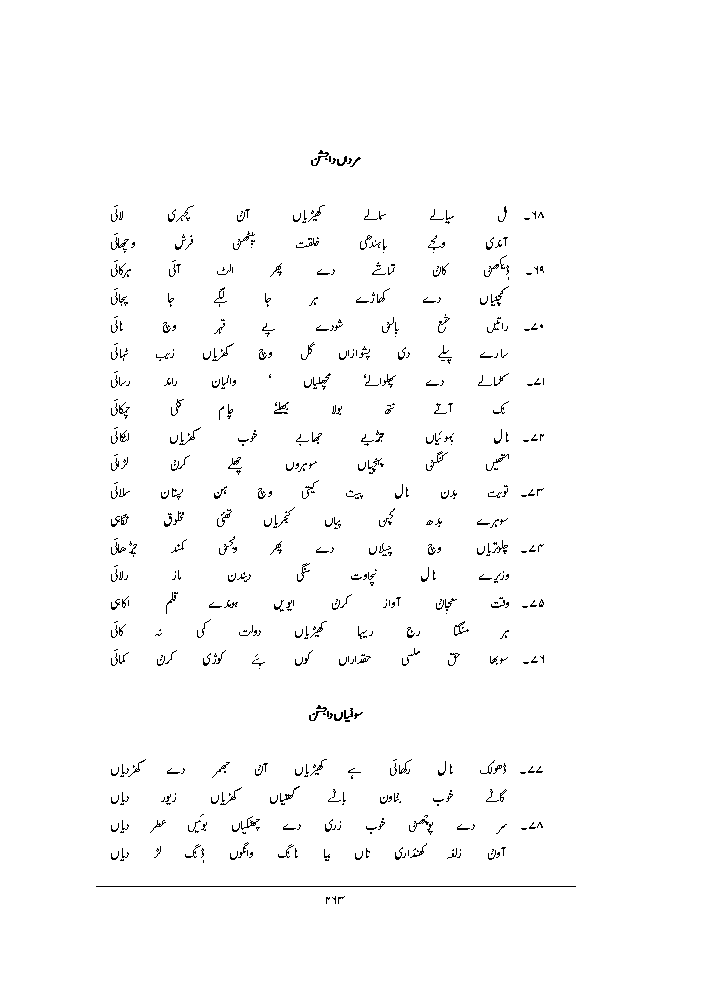 مرداں دا جشن
۶۸۔ مل سیالے سالے کھیڑیاں آن کچہری لائی
آندی ونجے باہندی خلقت وچھن فرش وچھائی
۶۹۔ ڈیکھن کان تماشے دے پھر الٹ آئی ہرکائی
کنچنیاں دے کھاڑے ہر جا لگے جا بجائی
۷۰۔ راتیں شمع بالن شودے پے قہر وچ نائی
سارے پیلے دی پشوازاں گل وچ کھڑیاں زیب ٹہائی
۷۱۔ کلمالے دے پھلوالے، مچھلیاں، والیاں راند رسائی
نک آتے نتھ بولا بھلئے چام کلی چمکائی
۷۲۔ نال بھوئیاں جڑبے جھابے خوب کھڑیاں لٹکائی
ہتھیں کنگنی پہنچیاں سوہروں چھلے کرن لڑائی
۷۳۔ توبت بدن نال پیٹ کیتی وچ ہن پستان سلائی
سوہرے بدھ کچن پیاں کنجریاں تھئی مخلوق تکاہی
۷۴۔ چلوتریاں وچ چیلاں دے پھر ونجن کمند چڑھائی
وزیرے نال نچاوت سنگی دیندن ناز رلائی
۷۵۔ وقت سبحان آواز کرن ایویں ہوندے قلم اکاہی
ہر منگتا رج ریہا کھیڑیاں دولت کی نہ کائی
۷۶۔ سوبھا حق ملسی حقداراں کوں بئے کوڑی کرن کمائی
سونیاں دا جشن
۷۷۔ ڈھولک نال رکھائی ہے کھیڑیاں آن جھمر دے کھڑدیاں
گانے خوب بناون بانے کھتیاں کھڑیاں زیور دیاں
۷۸۔ سر دے پوچھن خوب زری دے چھنکیاں بوئیں عطر دیاں
آون زلف کھنڈاری تاں بیا نانگ وانگوں ڈنگ لڑ دیاں
۲۶۳